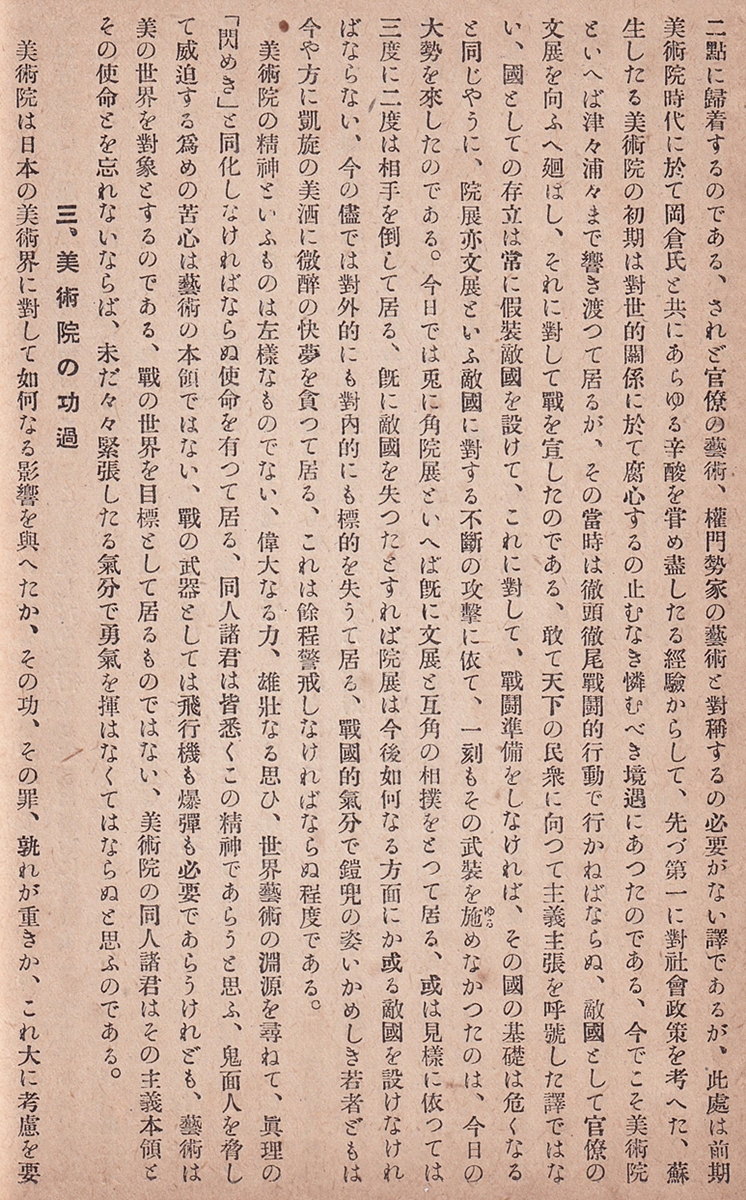 二點に歸着するのである、されど官僚の藝術、權門勢家の藝術と對稱するの必要がない譯であるが、此處は前期
美術院時代に於て岡倉氏と共にあらゆる辛酸を甞め盡したる經驗からして、先づ第一に對社會政策を考へた、蘇
生したる美術院の初期は對世的關係に於て腐心するの止むなき憐むべき境遇にあつたのである、今でこそ美術院
といへば津々浦々まで響き渡つて居るが、その當時は徹頭徹尾戰鬪的行動で行かねばならぬ、敵國として官僚の
文展を向ふへ廻はし、それに對して戰を宣したのである、敢て天下の民衆に向つて主義主張を呼號した譯ではな
い、國としての存立は常に假裝敵國を設けて、これに對して、戰鬪準備をしなければ、その國の基礎は危くなる
と同じやうに、院展亦文展といふ敵國に對する不斷の攻擊に依て、一刻もその武裝を施ゆるめなかつたのは、今日の
大勢を來したのである。今日では兎に角院展といへば旣に文展と互角の相撲をとつて居る、或は見樣に依つては
三度に二度は相手を倒して居る、旣に敵國を失つたとすれば院展は今後如何なる方面にか或る敵國を設けなけれ
ばならない、今の儘では對外的にも對內的にも標的を失うて居る、戰國的氣分で鎧兜の姿いかめしき若者どもは
今や方に凱旋の美酒に微醉の快夢を貪つて居る、これは餘程警戒しなければならぬ程度である。
美術院の精神といふものは左樣なものでない、偉大なる力、雄壯なる思ひ、世界藝術の淵源を尋ねて、眞理の
「閃めき」と同化しなければならぬ使命を有つて居る、同人諸君は皆悉くこの精神であらうと思ふ、鬼面人を脅し
て威迫する爲めの苦心は藝術の本領ではない、戰の武器としては飛行機も爆彈も必要であらうけれども、藝術は
美の世界を對象とするのである、戰の世界を目標として居るものではない、美術院の同人諸君はその主義本領と
その使命とを忘れないならば、未だ々々緊張したる氣分で勇氣を揮はなくてはならぬと思ふのである。
三、美術院の功過
美術院は日本の美術界に對して如何なる影響を與へたか、その功、その罪、孰れが重きか、これ大に考慮を要